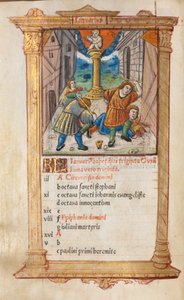 Luna vero triginta.
iii A Circuncisio domini
b octaua sancti stephani
c octaua sancti iohannis euangeliste
d octaua innocentum
xix e
viii f Epiphania domini
g iuliani martyris
xvi A
v
c pauli primi heremite